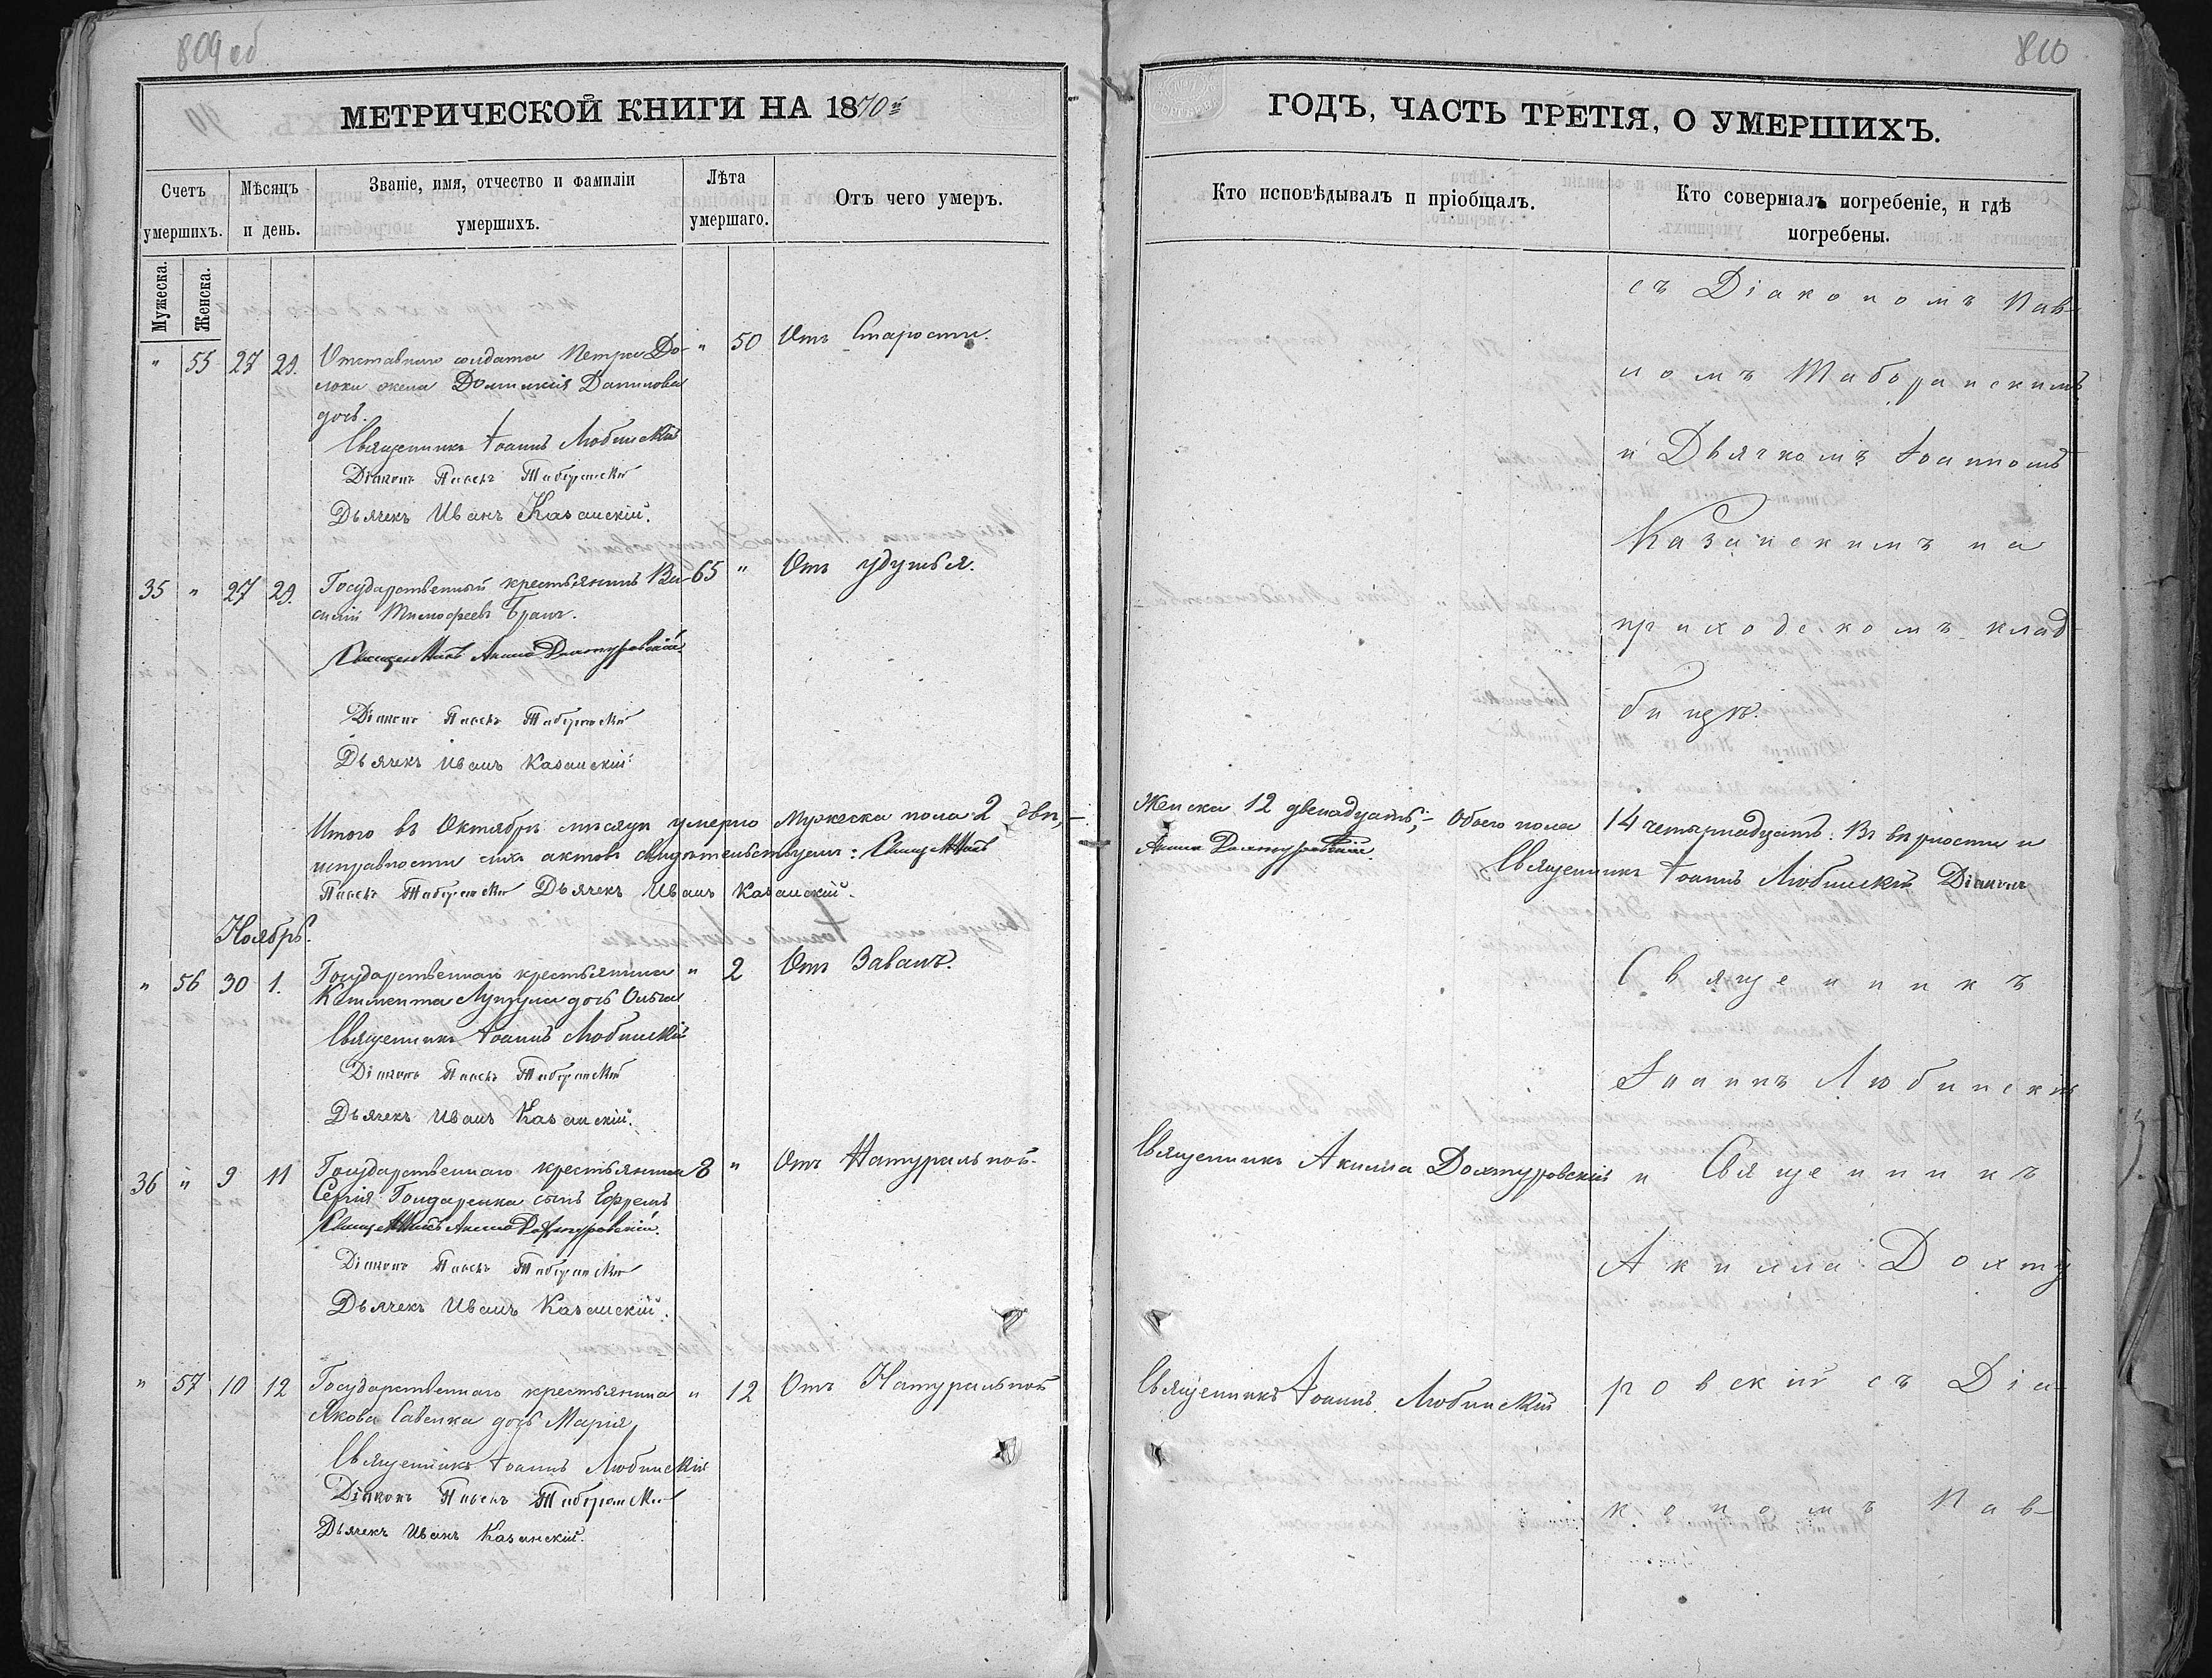 809 об
МЕТРИЧЕСКОЙ КНИГИ НА 1870й
Счетъ умершихъ.
Мѣсяцъ и день.
Званіе, имя, отчество и фамиліи умершихъ.
Лѣта умершаго.
Отъ чего умеръ.
Мужеска.
Женска.
" 55 27 29. Отставнаго солдата Петра До- " 50 Отъ Старости.
жена Данилова
дочь.
Священникъ Іоаннъ Любинскій
Діаконъ Павелъ
Дьячекъ Иванъ Казанскій.
35 " 27 29. Государственный крестьянинъ Ва- 65 " Отъ удушья.
силій Тимофеевъ
Священникъ Акила Дохтуровскій.
Діаконъ Павелъ
Дьячекъ Иванъ Казанскій
Итого въ Октябрѣ мѣсяцѣ умерло Мужеска пола 2 два,
исправности сихъ актовъ свидѣтельствуемъ: Священникъ
Павелъ Дьячекъ Иванъ Казанскій.
Ноябрь.
" 56 30 1. Государственнаго крестьянина " 2 Отъ
дочь Ольга
Священникъ Іоаннъ Любинскій
Діаконъ Павелъ
Дьячекъ Иванъ Казанскій.
36 " 9 11 Государственнаго крестьянина 8 " Отъ Натуральной
Сергія Гондаренка сынъ Ефремъ
Священникъ Акила Дохтуровскій.
Діаконъ Павелъ
Дьячекъ Иванъ Казанскій.
" 57 10 12 Государственнаго крестьянина " 12 Отъ Натуральной
Якова Савенка дочь Марія
Священникъ Іоаннъ Любинскій
Діаконъ Павелъ
Дьячекъ Иванъ Казанскій.
810
ГОДЪ, ЧАСТЬ ТРЕТІЯ, О УМЕРШИХЪ.
Кто исповѣдывалъ и пріобщалъ.
Кто совершалъ погребеніе, и гдѣ погребены.
съ Діакономъ Пав-
ломъ
и Дьячкомъ Іоанномъ
Казанскимъ на
приходскомъ клад-
бищѣ.
Женска 12 двенадцать; Обоего пола 14 четырнадцать. Въ вѣрности и
Акила Дохтуровскій.
Священникъ Іоаннъ Любинскій Діаконъ
Священникъ
Іоаннъ Любинскій
Священникъ Акилла Дохтуровскій
и Священникъ
Акилла Дохту
Священникъ Іоаннъ Любинскій
ровскій съ Діа-
кономъ Пав-